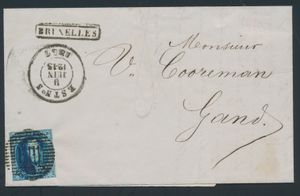 BRUXELLES
EST No
8
JUIN
Monsieur
V. Cooreman
Gand.